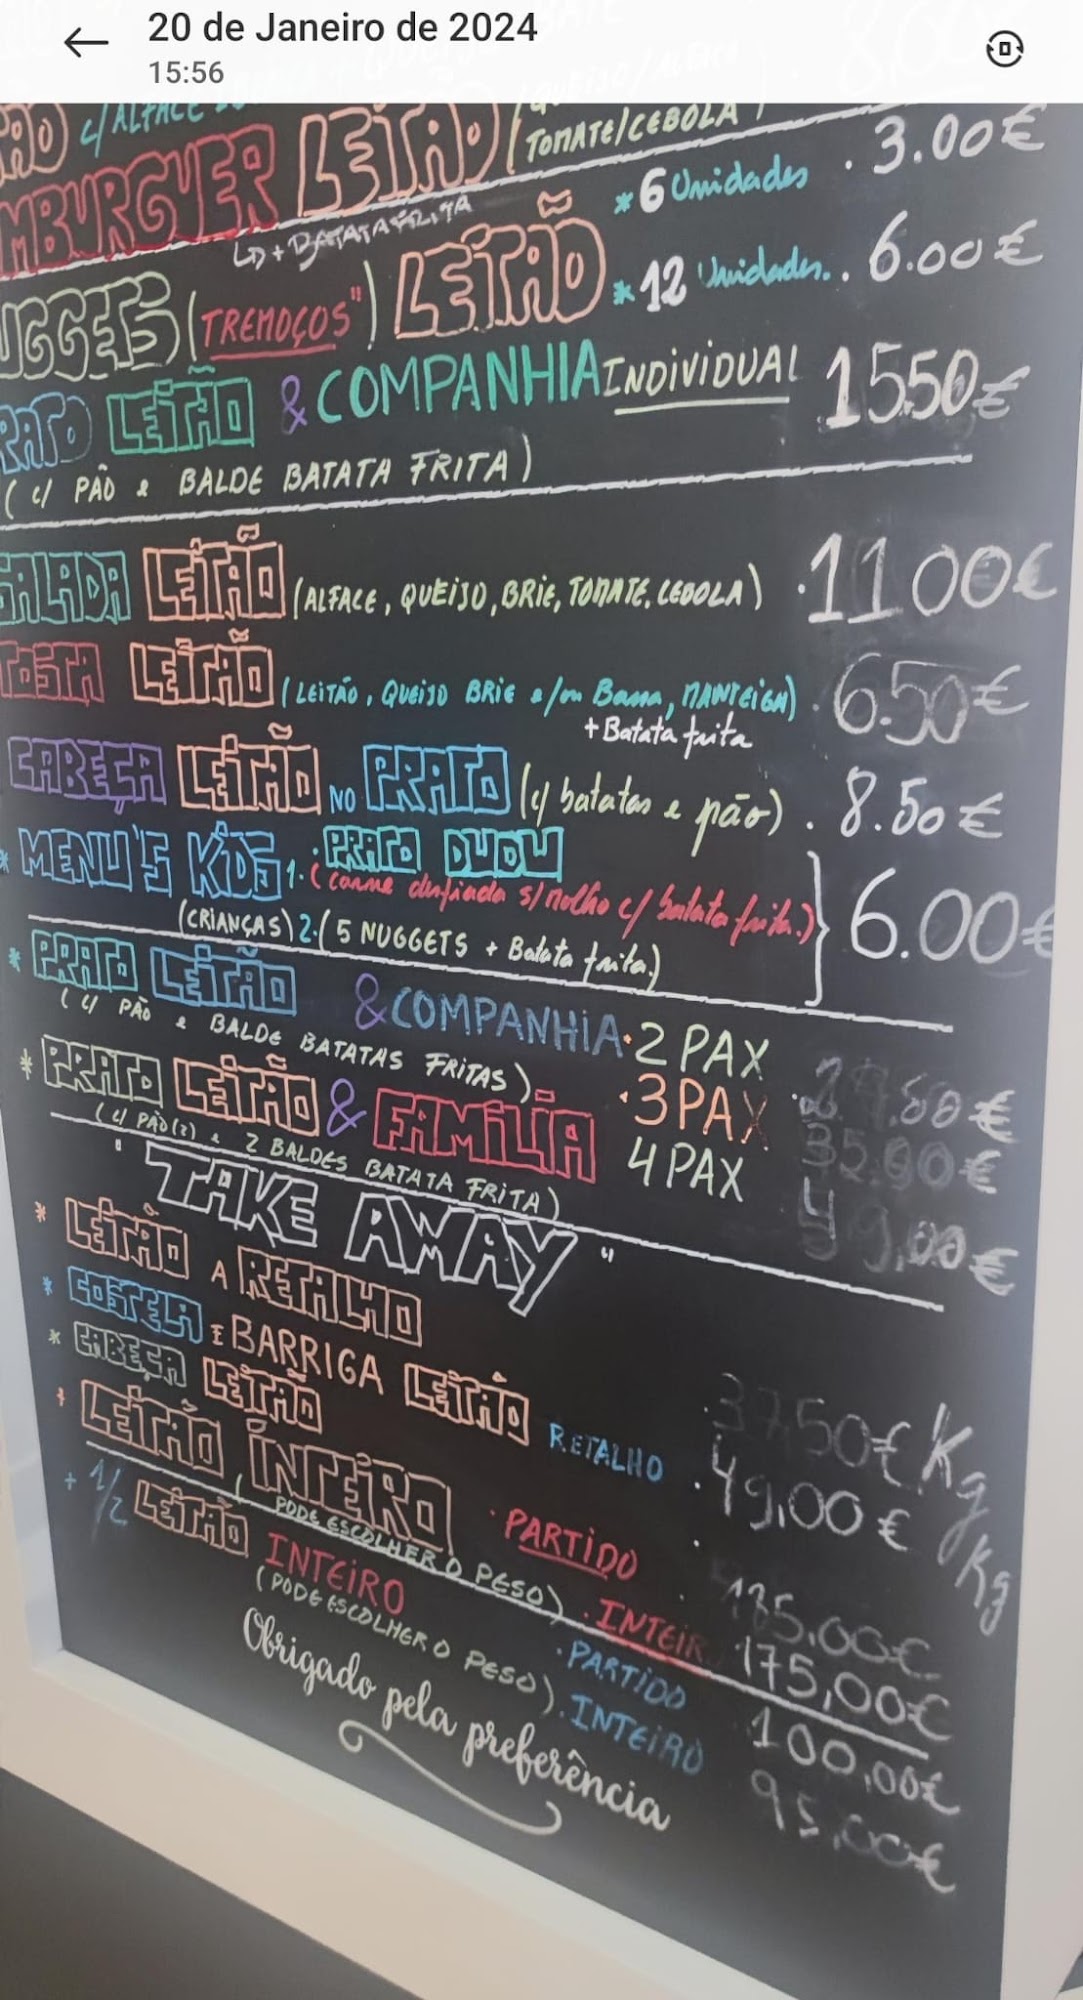 20 de Janeiro de 2024
15:56
C/ALFACE
TOMATE/CEBOLA
MBURGUER LEITÃO
↳ + BATATA FRITA
* 6 Unidades . 3.00€
UGGETS (TREMOÇOS") LEITÃO * 12 Unidades. . 6.00€
PRATO LEITÃO & COMPANHIA INDIVIDUAL 15.50€
(C/ PÃO & BALDE BATATA FRITA)
SALADA LEITÃO (ALFACE, QUEIJO, BRIE, TOMATE, CEBOLA) . 11.00€
TOSTA LEITÃO (LEITÃO, QUEIJO BRIE e/ou Banna, MANTEIGA) . 6.50€
+ Batata frita
CABEÇA LEITÃO NO PRATO (c/ batatas e pão) . 8.50€
* MENU'S KIDS 1. PRATO DUDU
(carne desfiada s/molho c/ batata frita.) 6.00€
(CRIANÇAS) 2. (5 NUGGETS + Batata frita.)
* PRATO LEITÃO & COMPANHIA . 2 PAX
(C/ PÃO & BALDE BATATAS FRITAS)
* PRATO LEITÃO & FAMÍLIA . 3 PAX
4 PAX 49,00€
(C/ PÃO(2) & 2 BALDES BATATA FRITA)
"TAKE AWAY"
* LEITÃO A RETALHO 37,50€ Kg
* COSTELA E BARRIGA LEITÃO RETALHO . 49,00€ Kg
* CABEÇA LEITÃO .
* LEITÃO INTEIRO . PARTIDO
(PODE ESCOLHER O PESO) . INTEIR 175,00€
+ 1/2 LEITÃO INTEIRO . PARTIDO 100,00€
(PODE ESCOLHER O PESO) . INTEIRO 95,00€
Obrigado pela preferência